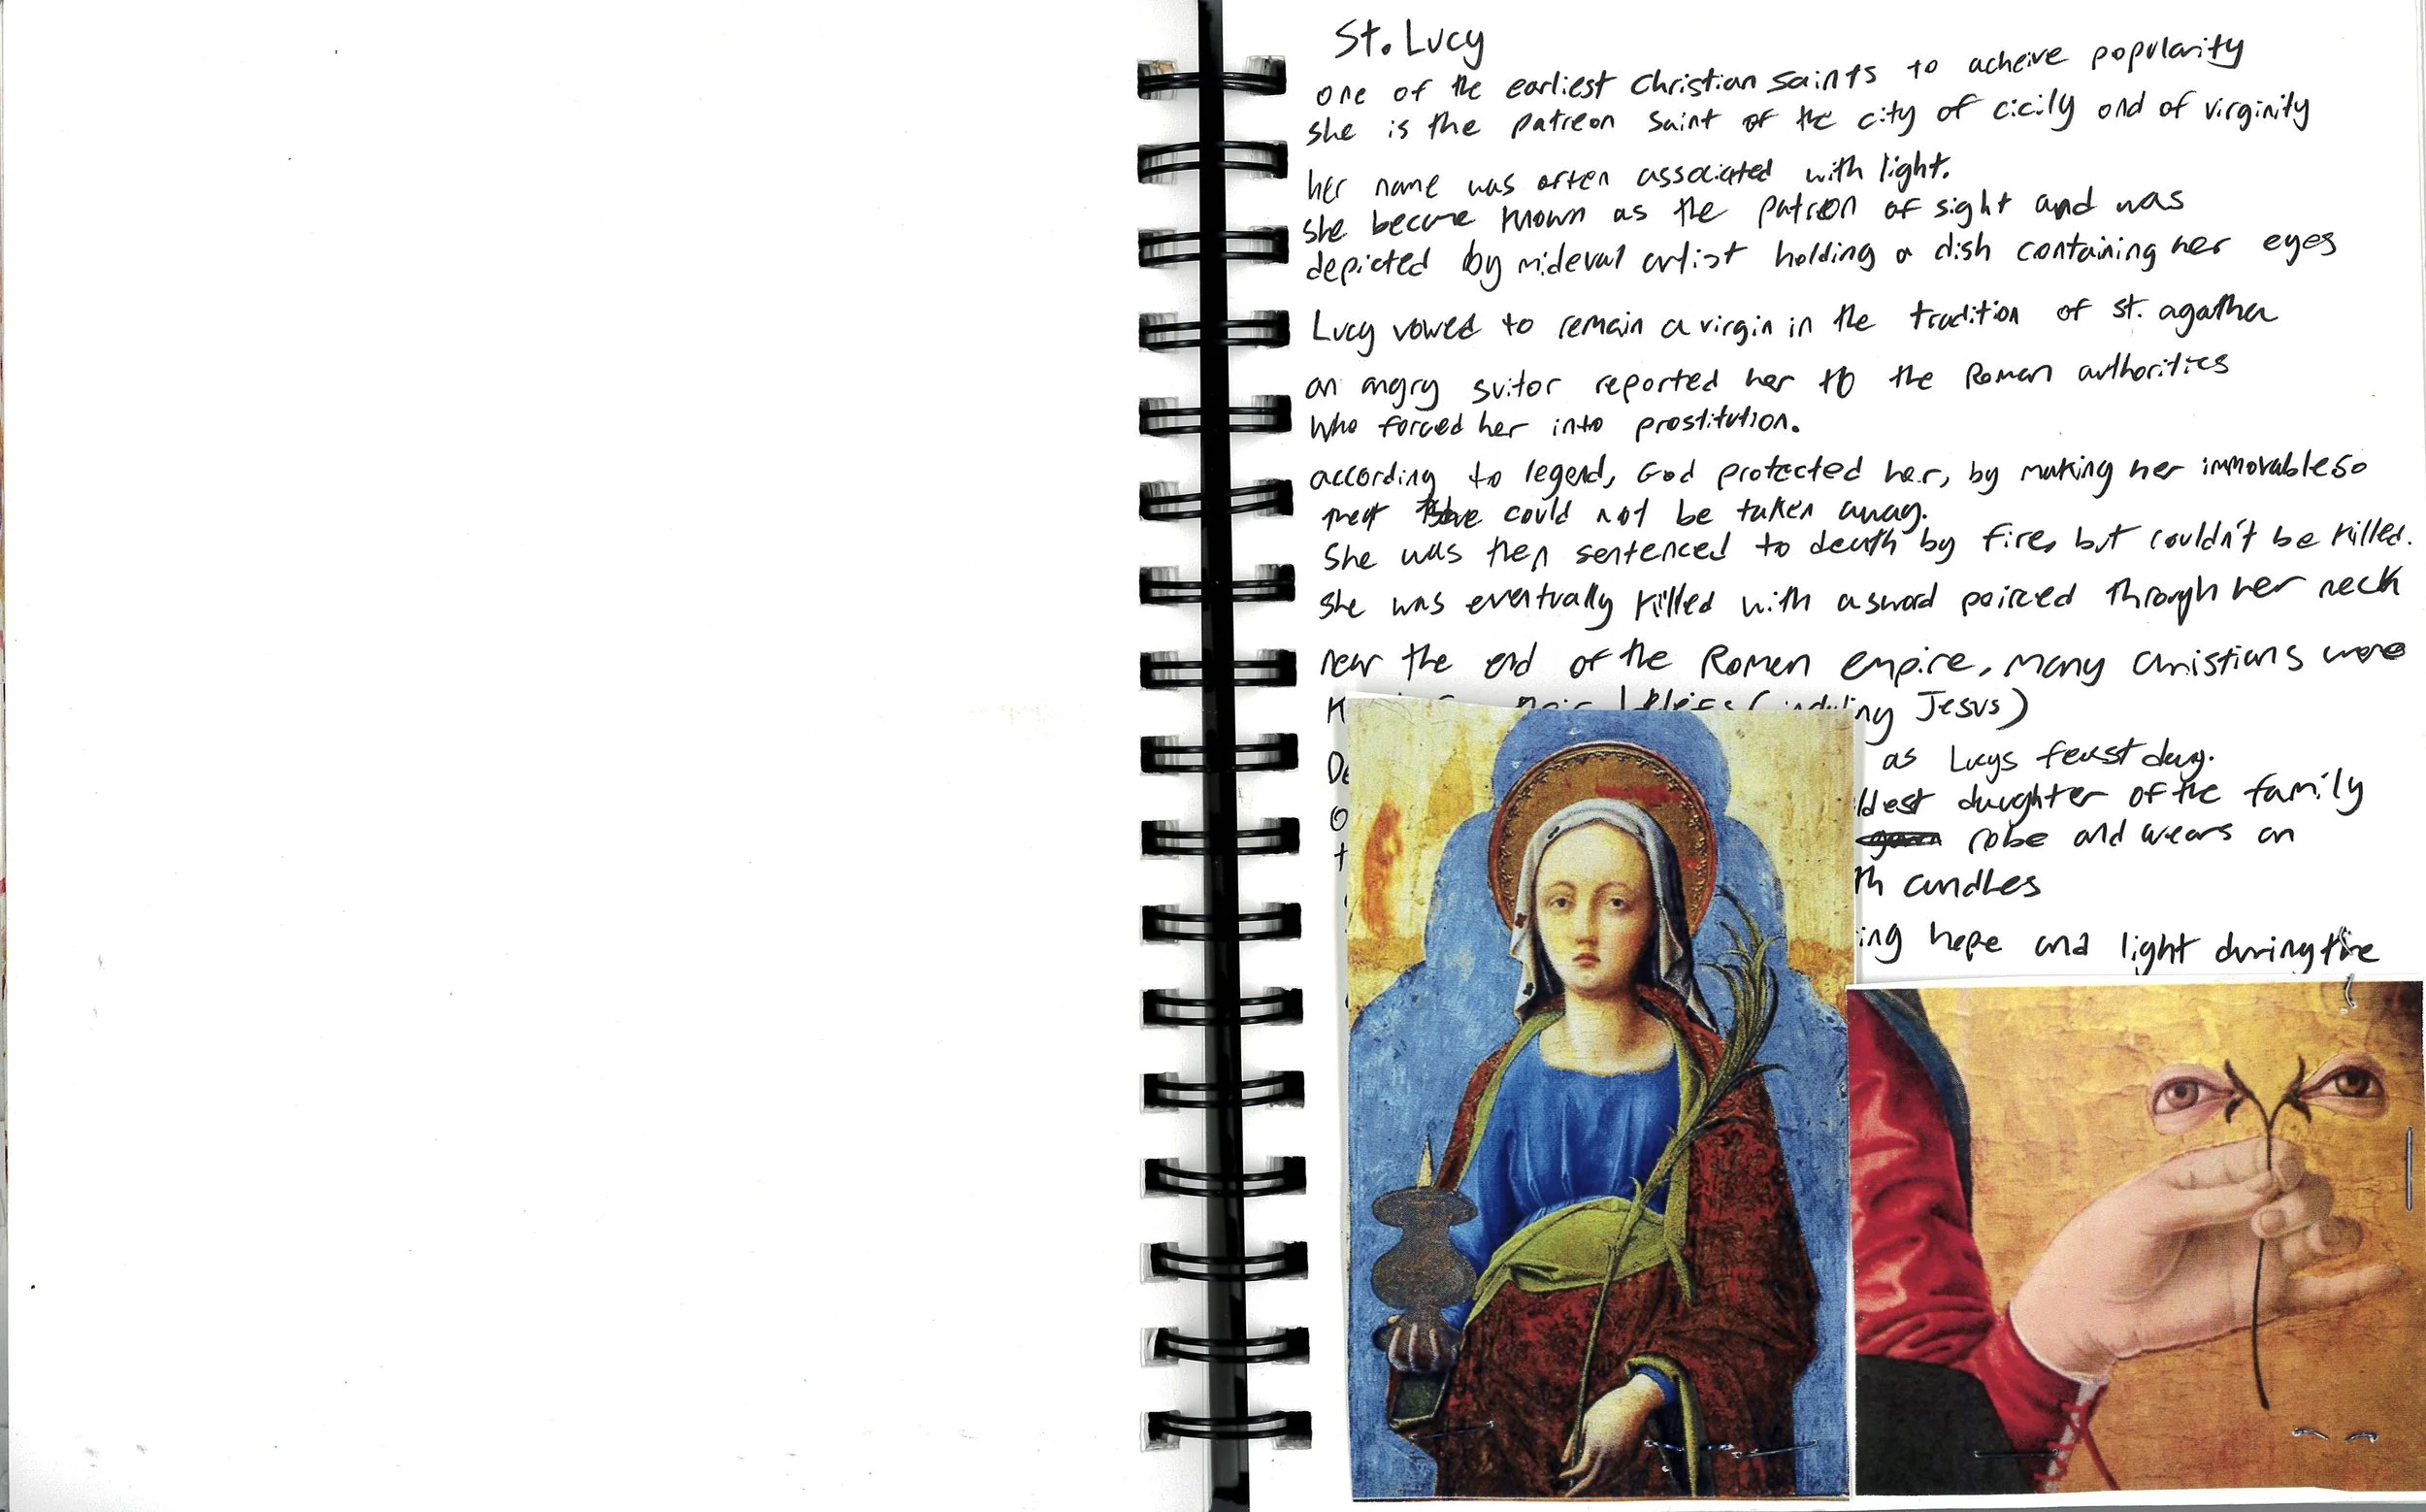 St. Lucy
one of the earliest Christian saints to acheive popularity
she is the patreon saint of the city of cicily and of virginity
her name was often associated with light.
she became known as the patron of sight and was
depicted by mideval artist holding a dish containing her eyes
Lucy vowed to remain a virgin in the tradition of st. agatha
an angry suitor reported her to the Roman authorities
who forced her into prostitution.
according to legend, God protected her, by making her immovable so
that she could not be taken away.
She was then sentenced to death by fire, but couldn't be killed.
she was eventually killed with a sword peirced through her neck
near the end of the Roman empire, many Christians were
Jesus)
as Lucys feast day.
daughter of the family
robe and wears an
candles
hope and light during the